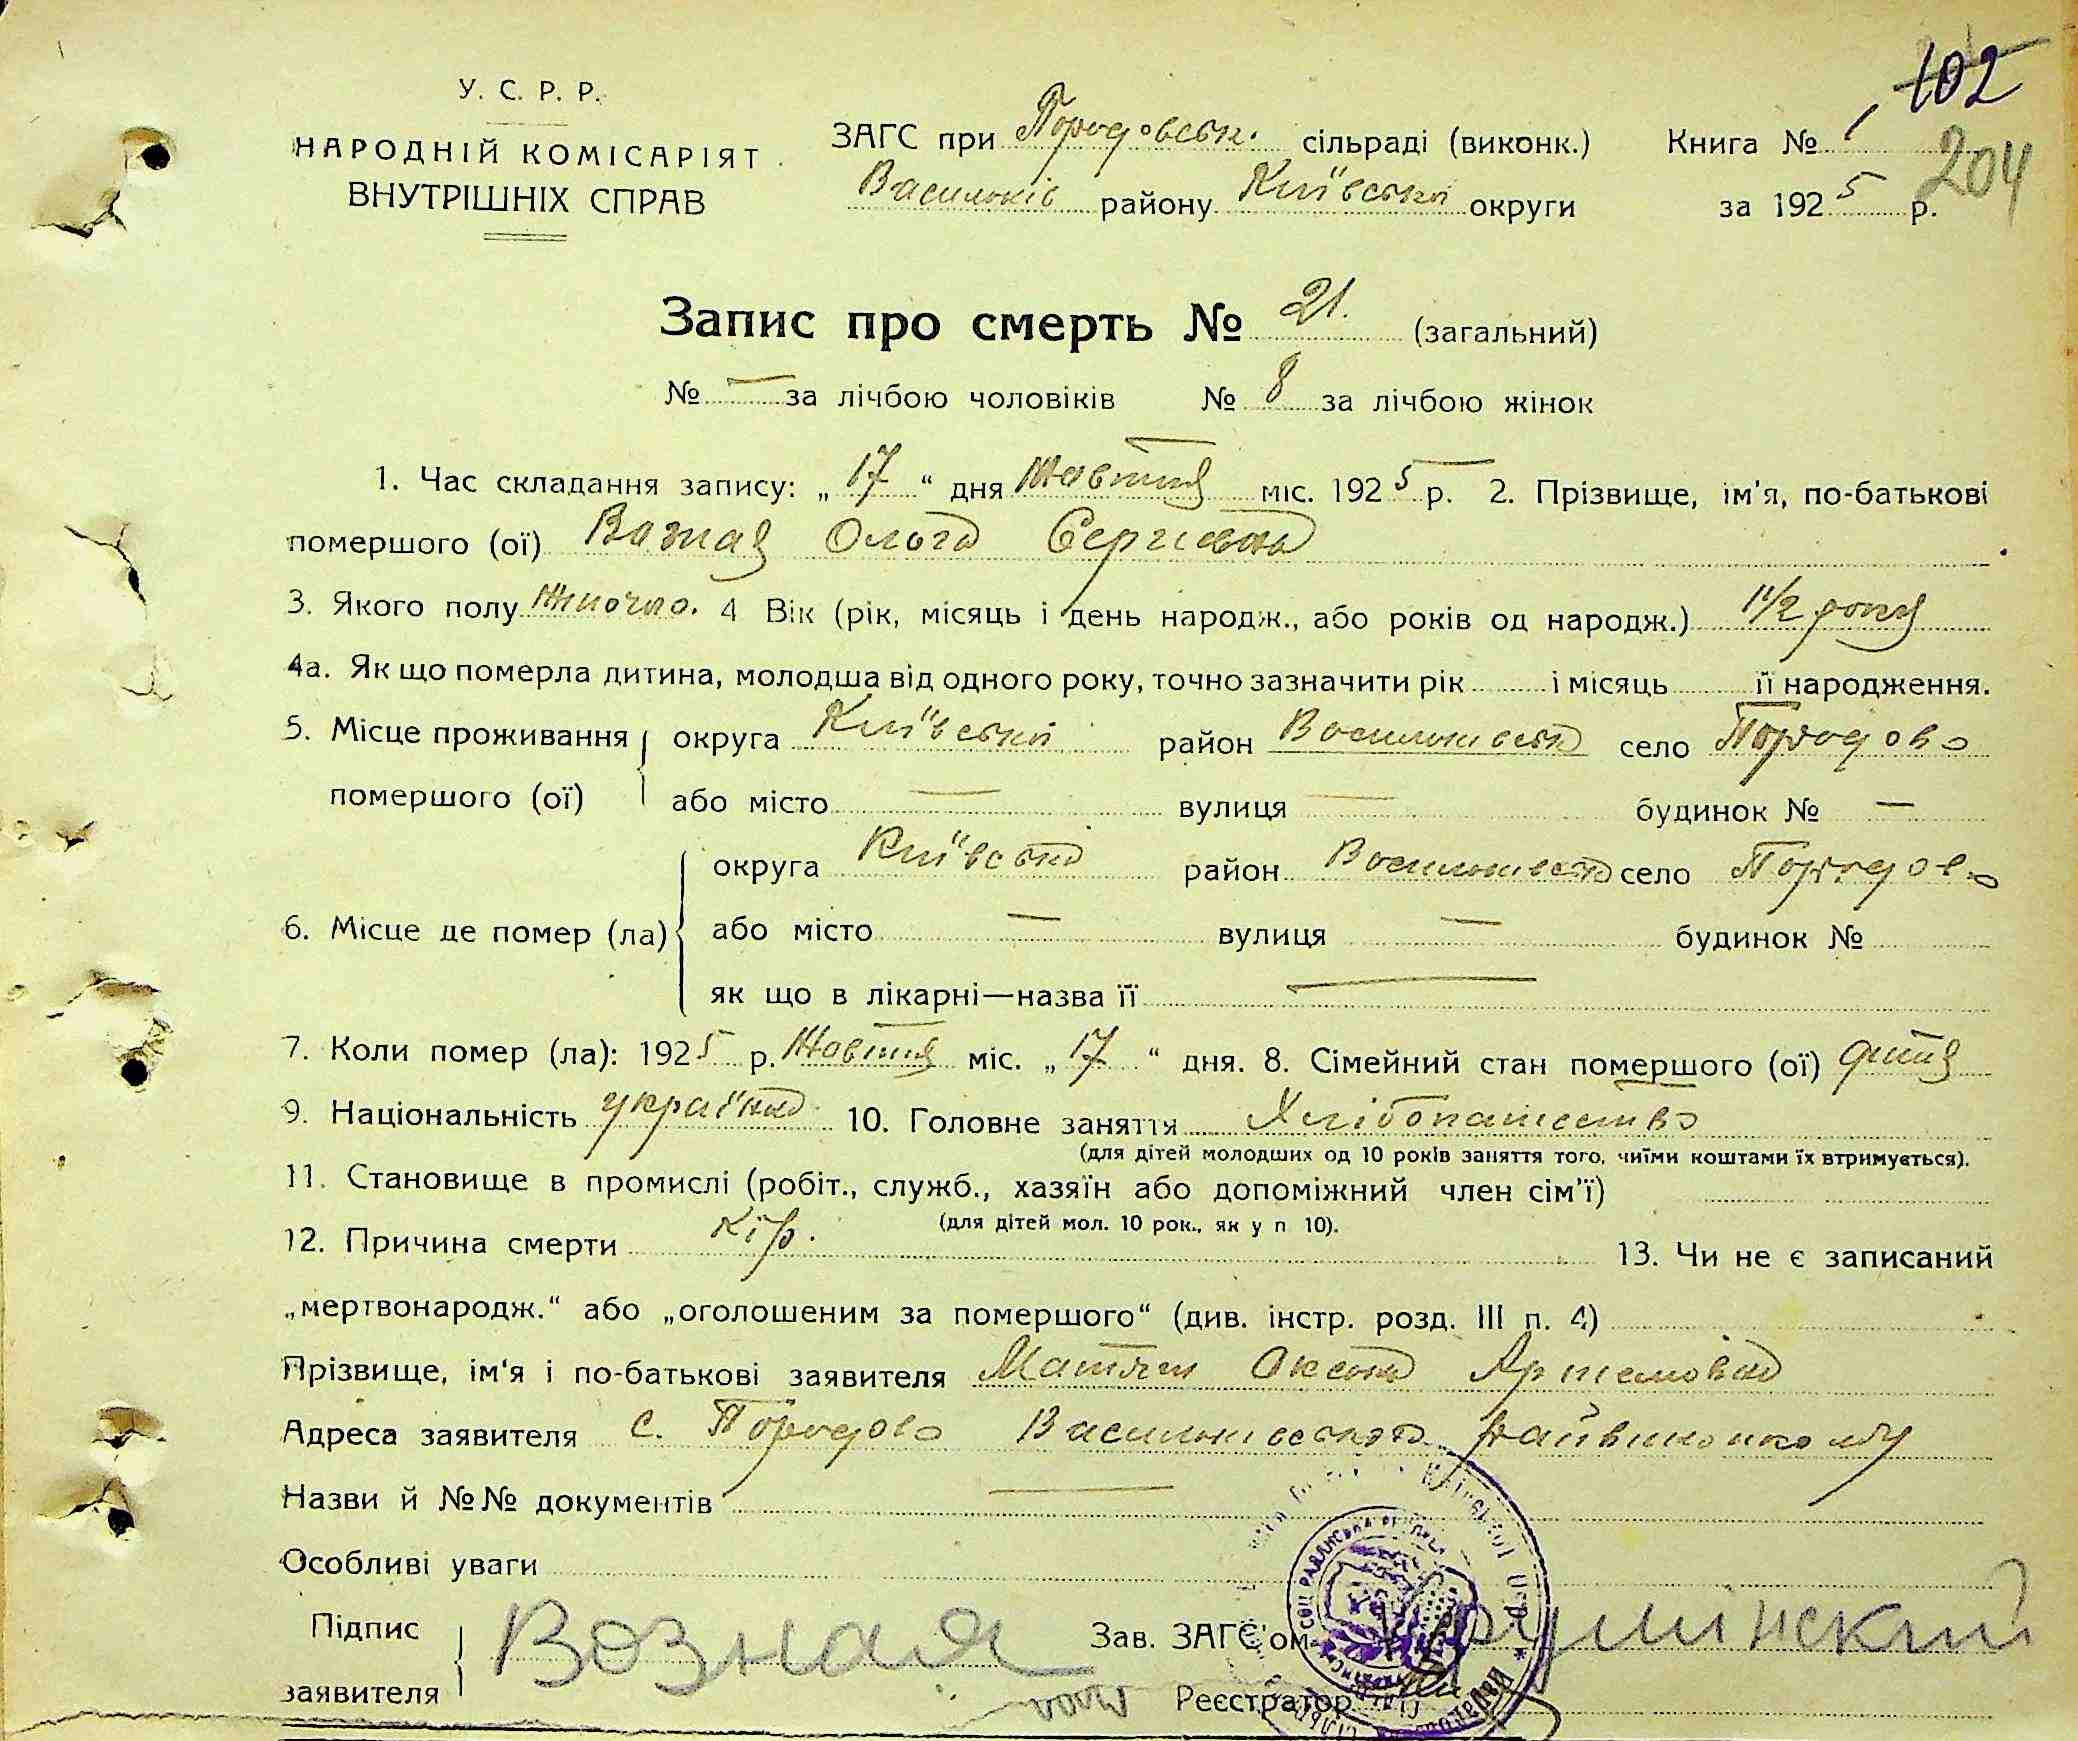 102
204
У. С. Р. Р.
НАРОДНІЙ КОМІСАРІЯТ
ВНУТРІШНІХ СПРАВ
ЗАГС при сільраді (виконк.)
Васильків району Київської округи
Книга № 1
за 1925 р.
Запис про смерть № 21. (загальний)
№ — за лічбою чоловіків № 8 за лічбою жінок
1. Час складання запису: „17“ дня Жовтня міс. 1925 р. 2. Прізвище, ім'я, по-батькові
помершого (ої) Ольга Сергієвна
3. Якого полу жіночло. 4 Вік (рік, місяць і день народж., або років од народж.) 1 1/2 року
4а. Як що померла дитина, молодша від одного року, точно зазначити рік і місяць її народження.
5. Місце проживання округа Київська район село
помершого (ої) або місто — вулиця — будинок № —
6. Місце де помер (ла) округа Київська район село
або місто — вулиця — будинок №
як що в лікарні—назва її —
7. Коли помер (ла): 1925 р. Жовтня міс. „17“ дня. 8. Сімейний стан помершого (ої) дитя
9. Національність україна 10. Головне заняття Хлібопашество
(для дітей молодших од 10 років заняття того, чиїми коштами їх втримується).
11. Становище в промислі (робіт., служб., хазяїн або допоміжний член сім'ї)
(для дітей мол. 10 рок., як у п 10).
12. Причина смерти Кір. 13. Чи не є записаний
„мертвонародж.“ або „оголошеним за помершого“ (див. інстр. розд. III п. 4)
Прізвище, ім'я і по-батькові заявителя Артемовна
Адреса заявителя с. Васильківського райвиконкому
Назви й №№ документів —
Особливі уваги
Підпис заявителя Возная
Зав. ЗАГС'ом
Реєстратор